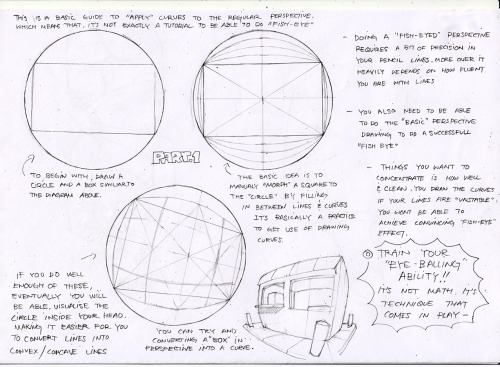 THIS IS A BASIC GUIDE TO "APPLY" CURVES TO THE REGULAR PERSPECTIVE.
WHICH MEANS THAT, IT'S NOT EXACTLY A TUTORIAL TO BE ABLE TO DO "FISH-EYE"
- DOING A "FISH-EYED" PERSPECTIVE
REQUIRES A BIT OF PRECISION IN
YOUR PENCIL LINES. MORE OVER IT
HEAVILY DEPENDS ON HOW FLUENT
YOU ARE WITH LINES
- YOU ALSO NEED TO BE ABLE
TO DO THE "BASIC" PERSPECTIVE
DRAWING TO DO A SUCCESSFUL
"FISH EYE"
PART 1
TO BEGIN WITH, DRAW A
CIRCLE AND A BOX SIMILAR TO
THE DIAGRAM ABOVE.
THE BASIC IDEA IS TO
MANUALY "MORPH" A SQUARE TO
THE "CIRCLE" BY FILLING
IN BETWEEN LINES & CURVES
IT'S BASICALLY A PRACTICE
TO GET USE OF DRAWING
CURVES.
- THINGS YOU WANT TO
CONCENTRATE IS HOW WELL
& CLEAN. YOU DRAW THE CURVES
IF YOUR LINES ARE "UNSTABLE".
YOU WONT BE ABLE TO
ACHIEVE CONVINCING "FISH-EYE"
EFFECT.
IF YOU DO WELL
ENOUGH OF THESE,
EVENTUALLY YOU WILL
BE ABLE, VISUALISE THE
CIRCLE INSIDE YOUR HEAD.
MAKING IT EASIER FOR YOU
TO CONVERT LINES INTO
CONVEX/CONCAVE LINES
YOU CAN TRY AND
CONVERTING A "BOX" IN
PERSPECTIVE INTO A CURVE.
TRAIN YOUR
"EYE-BALLING"
ABILITY!!
IT'S NOT MATH. IT'S
TECHNIQUE THAT
COMES IN PLAY -